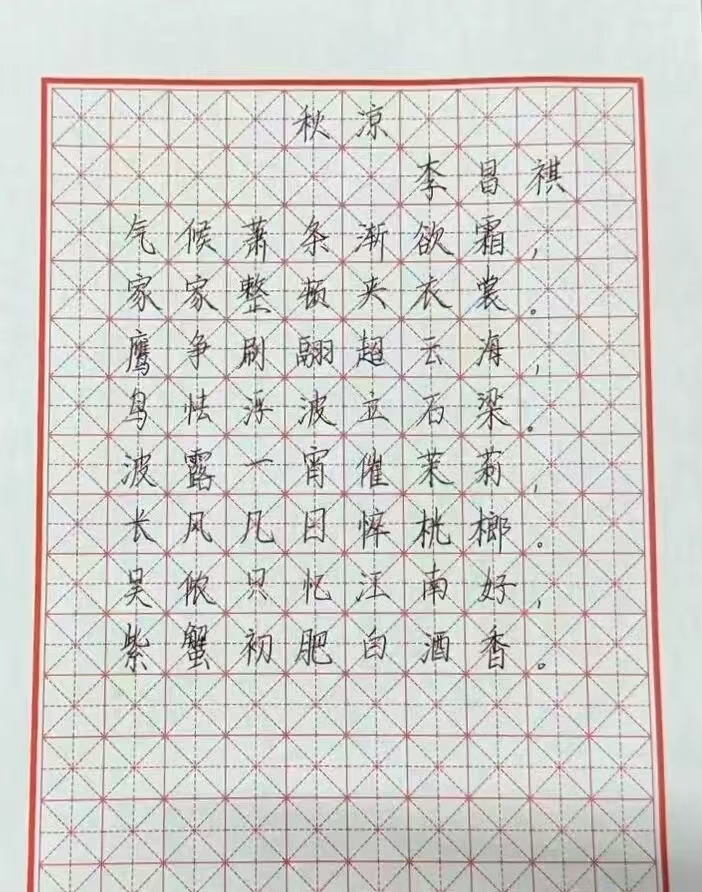 秋凉
李昌祺
气候萧条渐欲霜，
家家整顿夹衣裳。
鹰争刷翮超云海，
鸟怯浮波立石梁。
波露一宵催茉莉，
长风几日悴桄榔。
吴侬只忆江南好，
紫蟹初肥白酒香。